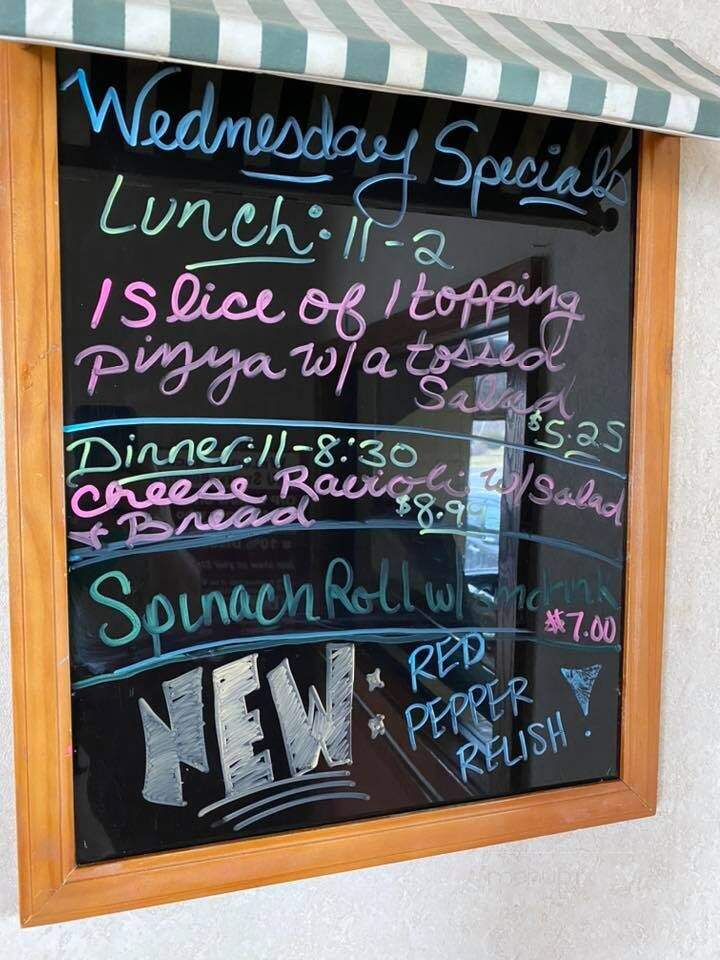 Wednesday Specials
Lunch: 11-2
1 Slice of 1 topping
pizza w/ a tossed
Salad
$5.25
Dinner: 11-8:30
Cheese Ravioli w/ Salad
+ Bread $8.99
Spinach Roll w/ sm drink
$7.00
NEW: RED
PEPPER
RELISH!